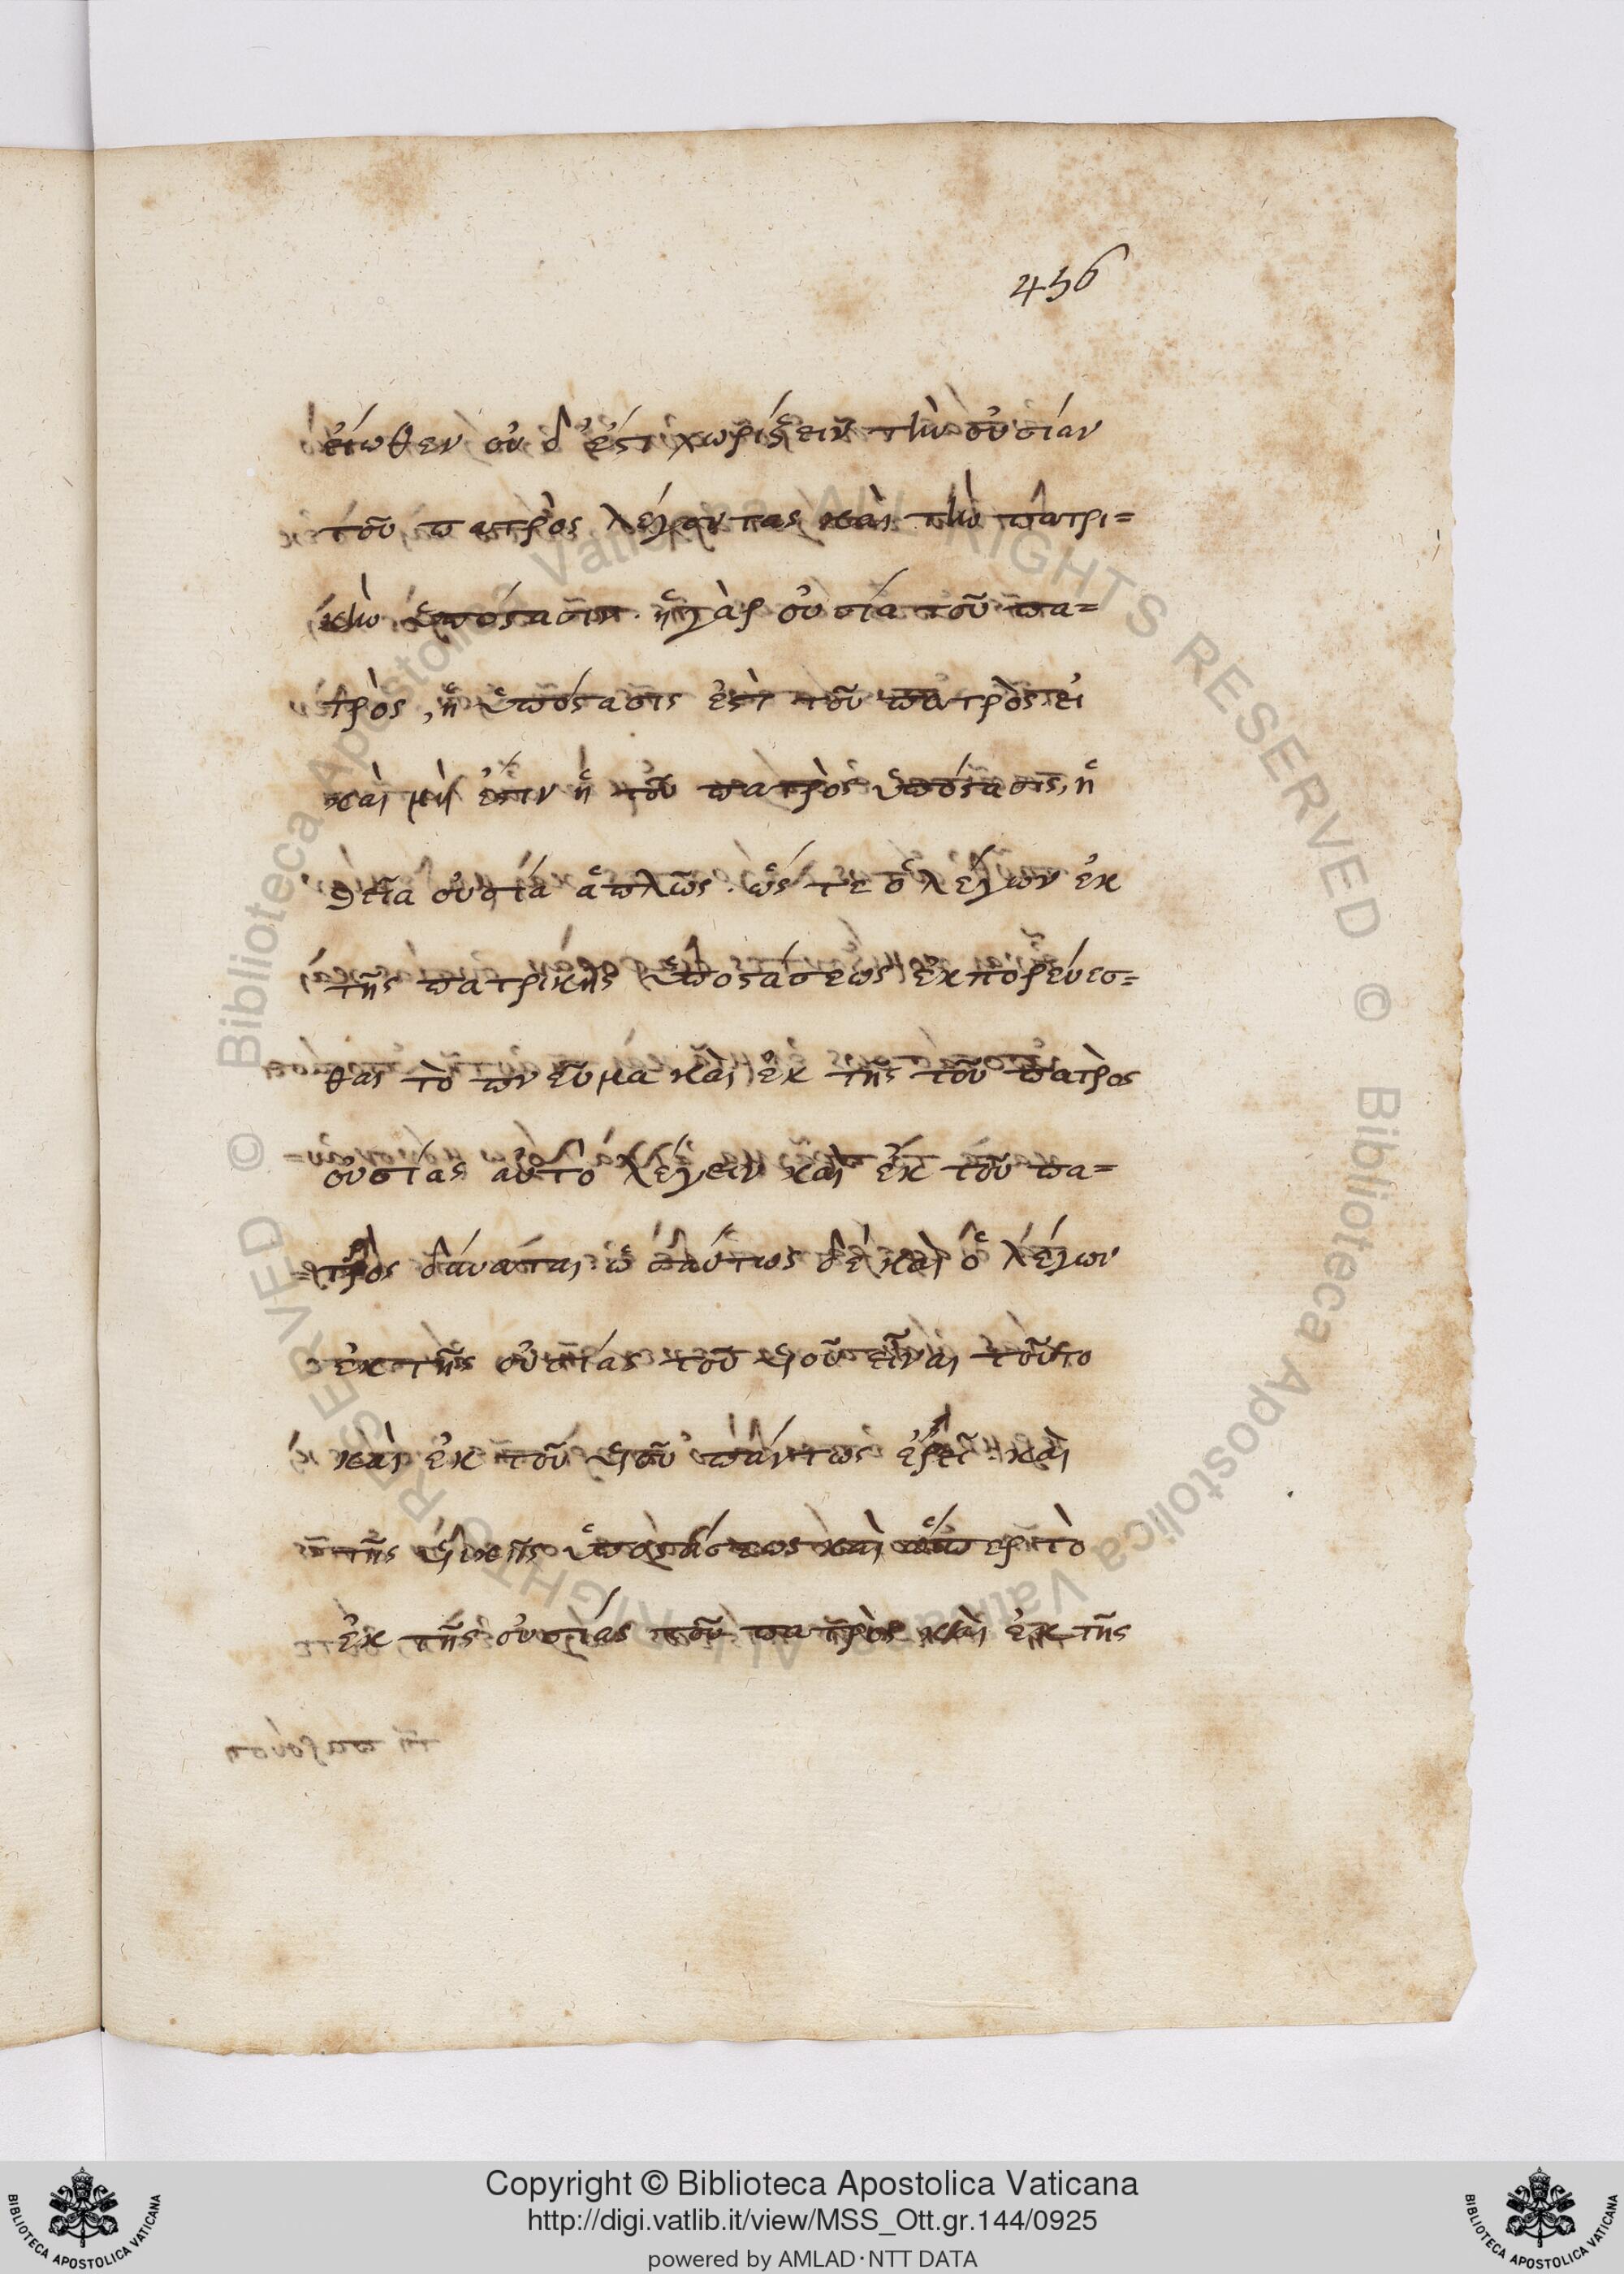 456
εἴωθεν οὐδ' ἔστι χωρίζειν τὴν οὐσίαν
τοῦ πατρὸς λέγοντας καὶ τὴν πατρι=
κὴν ὑπόστασιν. ἡ γὰρ οὐσία τοῦ πα=
τρὸς, ἡ ὑπόστασις ἐστὶ τοῦ πατρὸς εἰ
καὶ μή ἐστιν ἡ τοῦ πατρὸς ὑπόστασις, ἡ
θεία οὐσία ἁπλῶς. ὥστε ὁ λέγων ἐκ
τῆς πατρικῆς ὑποστάσεως ἐκπορεύεσ=
θαι τὸ πνεῦμα καὶ ἐκ τῆς τοῦ πατρὸς
οὐσίας αὐτὸ λέγειν καὶ ἐκ τοῦ πα=
=τρὸς δύναται. ὡσαύτως δὲ καὶ ὁ λέγων
ἐκ τῆς οὐσίας τοῦ υἱοῦ εἶναι τοῦτο
καὶ ἐκ τοῦ υἱοῦ πάντως ἐρεῖ. καὶ
τῆς υἱικῆς ὑποστάσεως καὶ ὥσπερ τὸ
ἐκ τῆς οὐσίας τοῦ πατρὸς καὶ ἐκ τῆς
© Biblioteca Apostolica Vaticana ALL RIGHTS RESERVED © Biblioteca Apostolica Vaticana ALL RIGHTS RESERVED
Copyright © Biblioteca Apostolica Vaticana
http://digi.vatlib.it/view/MSS_Ott.gr.144/0925
powered by AMLAD·NTT DATA
BIBLIOTECA APOSTOLICA VATICANA
BIBLIOTECA APOSTOLICA VATICANA